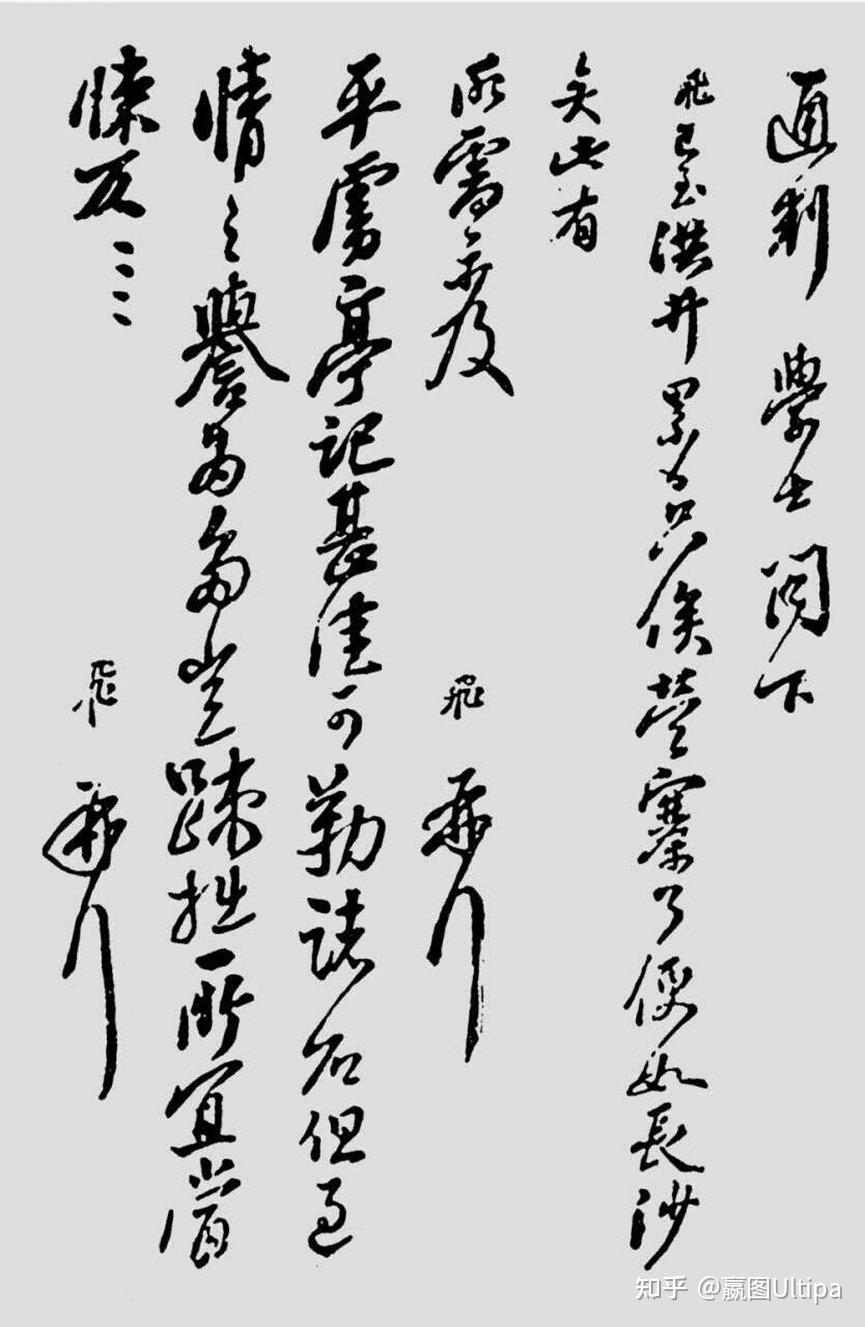 通判 學士 閣下
飛已至洪井累日只俟營寨了便如長沙
矣此有
所需示及 飛 再拜
平虜亭記甚佳可勒諸石但過
情之譽為多豈踈拙所宜當
悚仄 飛 再拜
知乎 @嬴图Ultipa